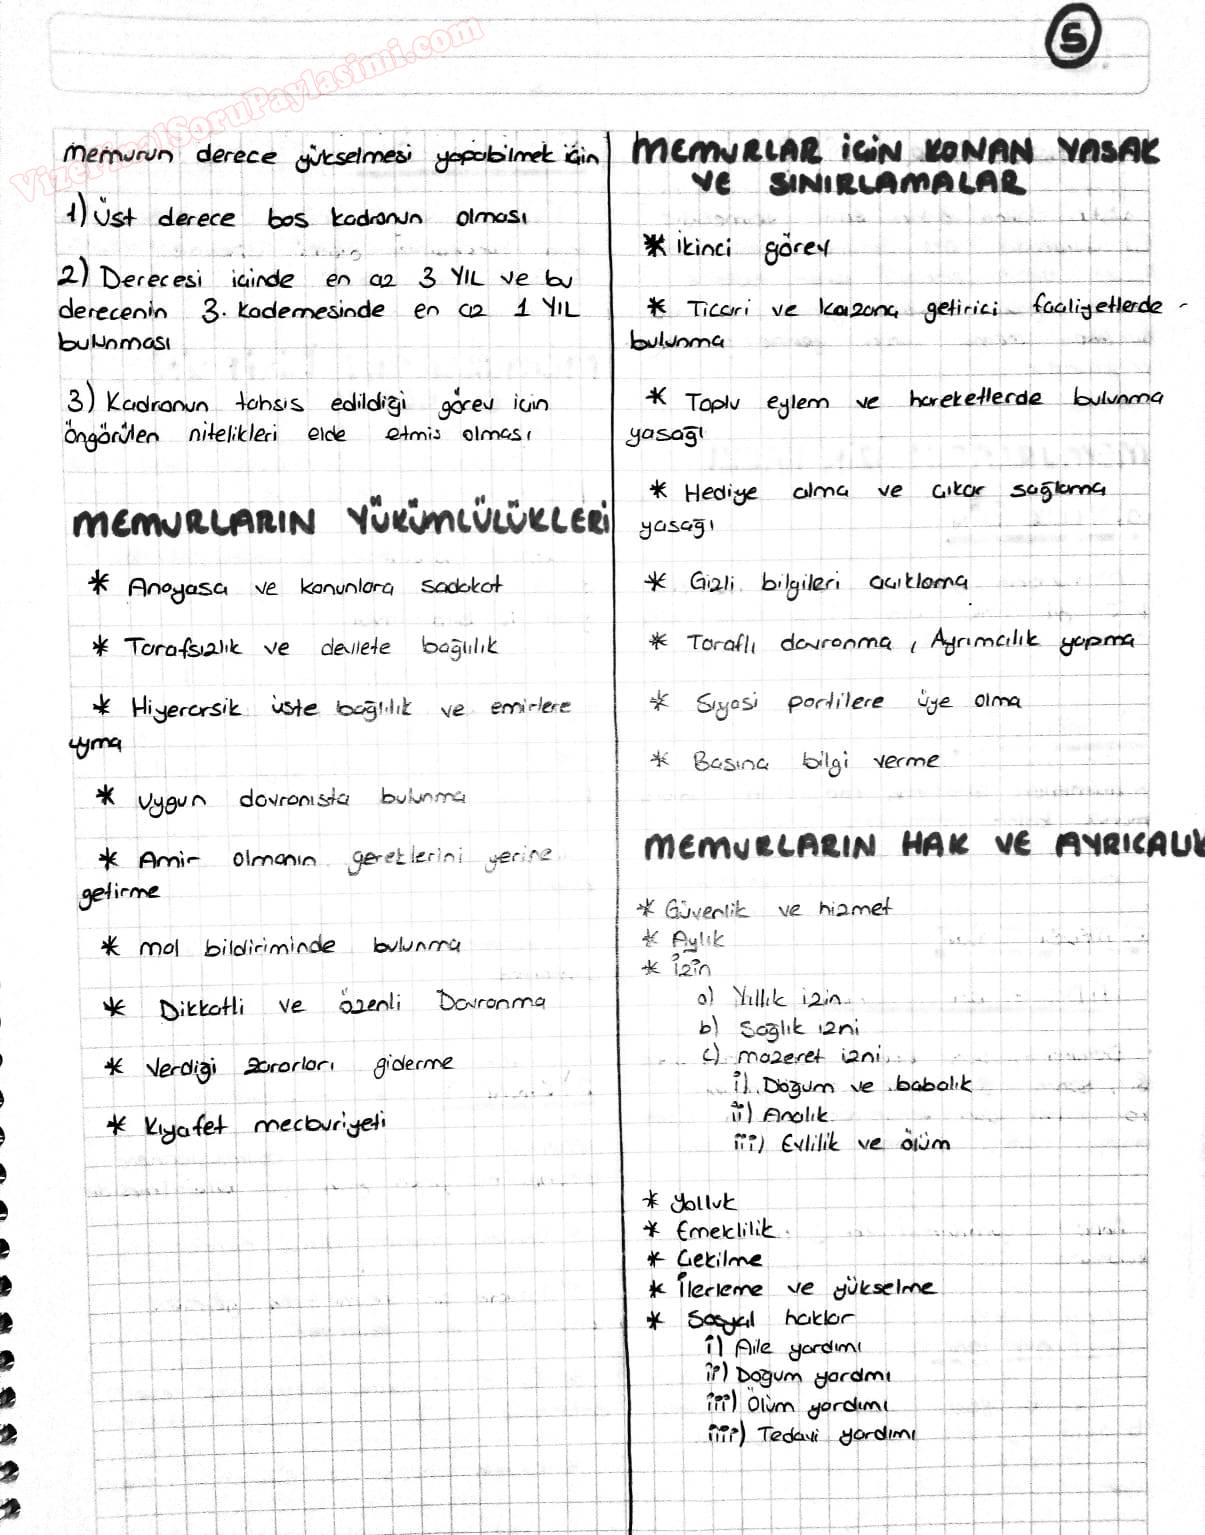 5
VizeFinalSoruPaylasimi.com
Memurun derece yükselmesi yapabilmek için
1) Üst derece bos kadronun olması
2) Derecesi icinde en az 3 YIL ve bu
derecenin 3. kademesinde en az 1 YIL
bulunması
3) Kadronun tahsis edildiği görev icin
öngörülen nitelikleri elde etmis olması
MEMURLARIN YÜKÜMLÜLÜKLERİ
* Anayasa ve kanunlara sadakat
* Tarafsızlık ve devlete bağlılık
* Hiyerarsik üste bağlılık ve emirlere
uyma
* Uygun davranısta bulunma
* Amir olmanın gereklerini yerine
getirme
* mal bildiriminde bulunma
* Dikkatli ve özenli Davranma
* Verdiği zararları giderme
* Kıyafet mecburiyeti
MEMURLAR İÇİN KONAN YASAK
VE SINIRLAMALAR
* İkinci görev
* Ticari ve kazanç getirici faaliyetlerde
bulunma
* Toplu eylem ve hareketlerde bulunma
yasağı
* Hediye alma ve cıkar sağlama
yasağı
* Gizli bilgileri acıklama
* Taraflı davranma, Ayrımcılık yapma
* Sıyasi partilere üye olma
* Basına bilgi verme
MEMURLARIN HAK VE AYRICALIK
* Güvenlik ve hizmet
* Aylık
* İzin
a) Yıllık izin
b) Sağlık izni
c) mazeret izni
i) Doğum ve babalık
ii) Analık
iii) Evlilik ve ölüm
* Yolluk
* Emeklilik
* Cekilme
* İlerleme ve yükselme
* Sosyal haklar
i) Aile yardımı
ii) Doğum yardmı
iii) Ölüm yardımı
iiii) Tedavi yardımı